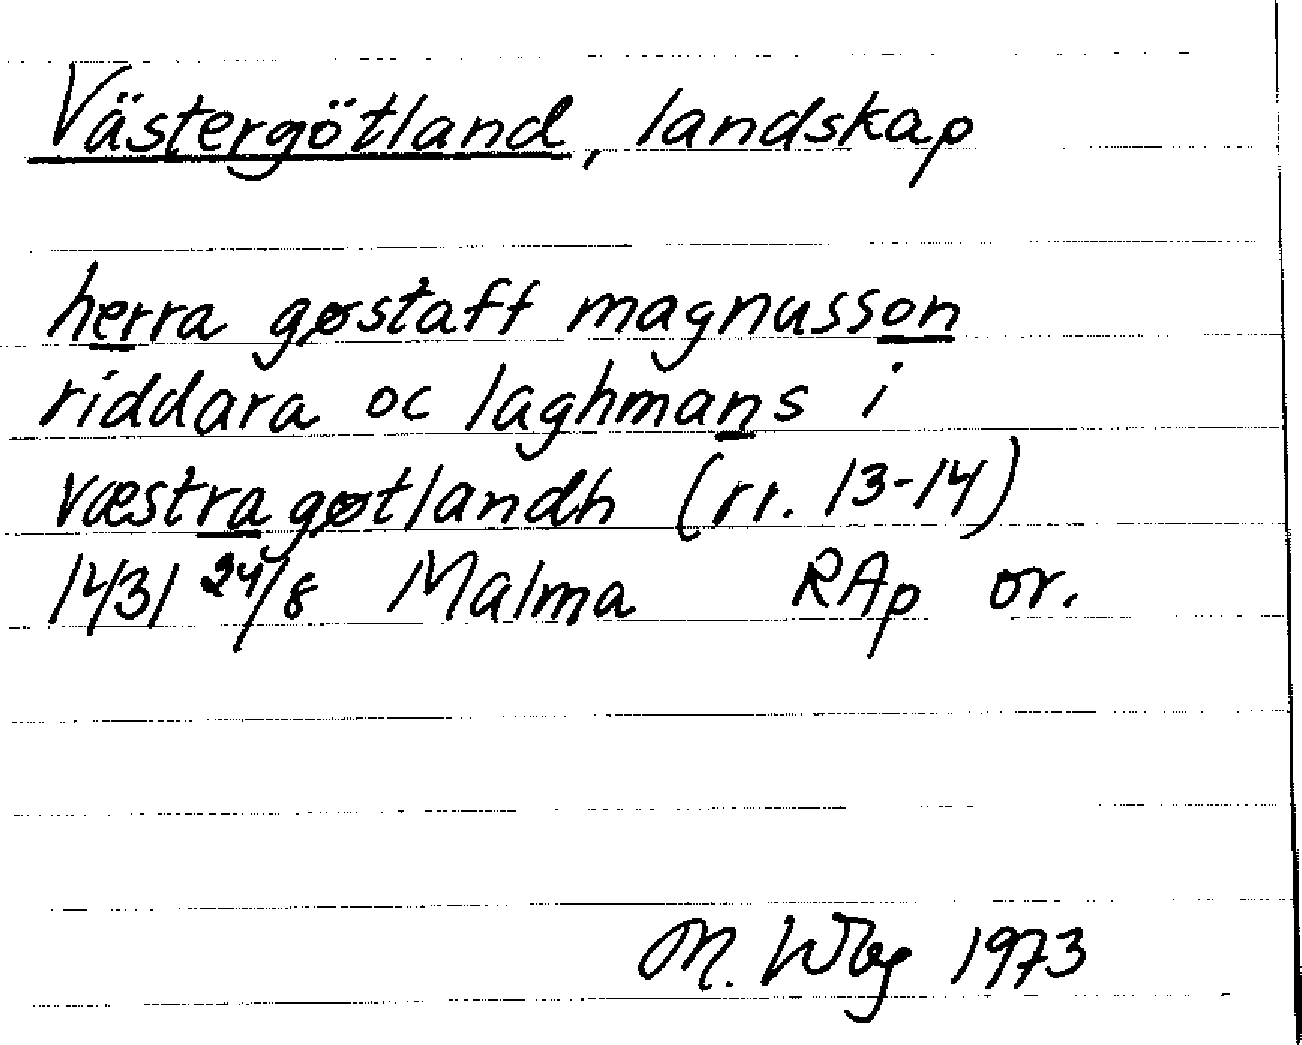 Västergötland, landskap
herra gøstaff magnusson
riddara oc laghmans i
væstra gøtlandh (rr. 13-14)
1431 24/8 Malma RAp or.
M. Wbg 1973